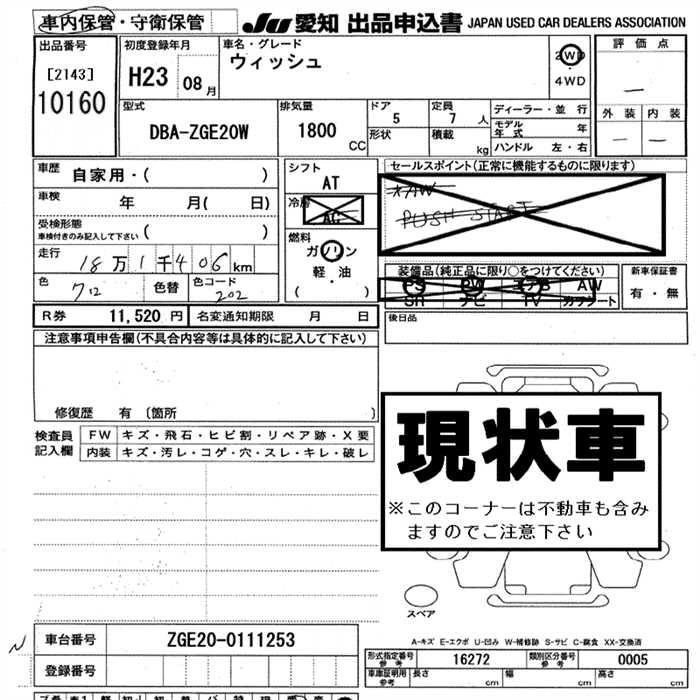 車内保管・守衛保管
JU 愛知 出品申込書 JAPAN USED CAR DEALERS ASSOCIATION
出品番号
[2143]
10160
初度登録年月
H23 08月
車名・グレード
ウィッシュ
2WD
・
4WD
評価点
—
外装 内装
— —
型式
DBA-ZGE20W
排気量
1800 CC
ドア
5
形状
定員
7 人
積載
kg
ディーラー・並行
モデル年式 年
ハンドル 左・右
車歴
自家用・( )
車検 年 月( 日)
受検形態
車検付きのみ記入して下さい ( )
走行
18万1千406km
色
色替
色コード
202
シフト
AT
冷房
AC
燃料
ガソリン
軽・油
( )
セールスポイント(正常に機能するものに限ります)
AW
PUSH START
装備品(純正品に限り○をつけてください)
PS PW エアB AW
SR ナビ TV カワシート
新車保証書
有・無
R券 11,520円
名変通知期限 月 日
後日品
注意事項申告欄(不具合内容等は具体的に記入して下さい)
修復歴 有 〔箇所 〕
検査員
記入欄
FW キズ・飛石・ヒビ割・リペア跡・X要
内装 キズ・汚レ・コゲ・穴・スレ・キレ・破レ
現状車
※このコーナーは不動車も含み
ますのでご注意下さい
スペア
A-キズ E-エクボ U-凹み W-補修跡 S-サビ C-腐食 XX-交換済
車台番号 ZGE20-0111253
登録番号
形式指定番号
参考
16272
類別区分番号
参考
0005
車庫証明用
参考
長さ cm 幅 cm 高さ cm